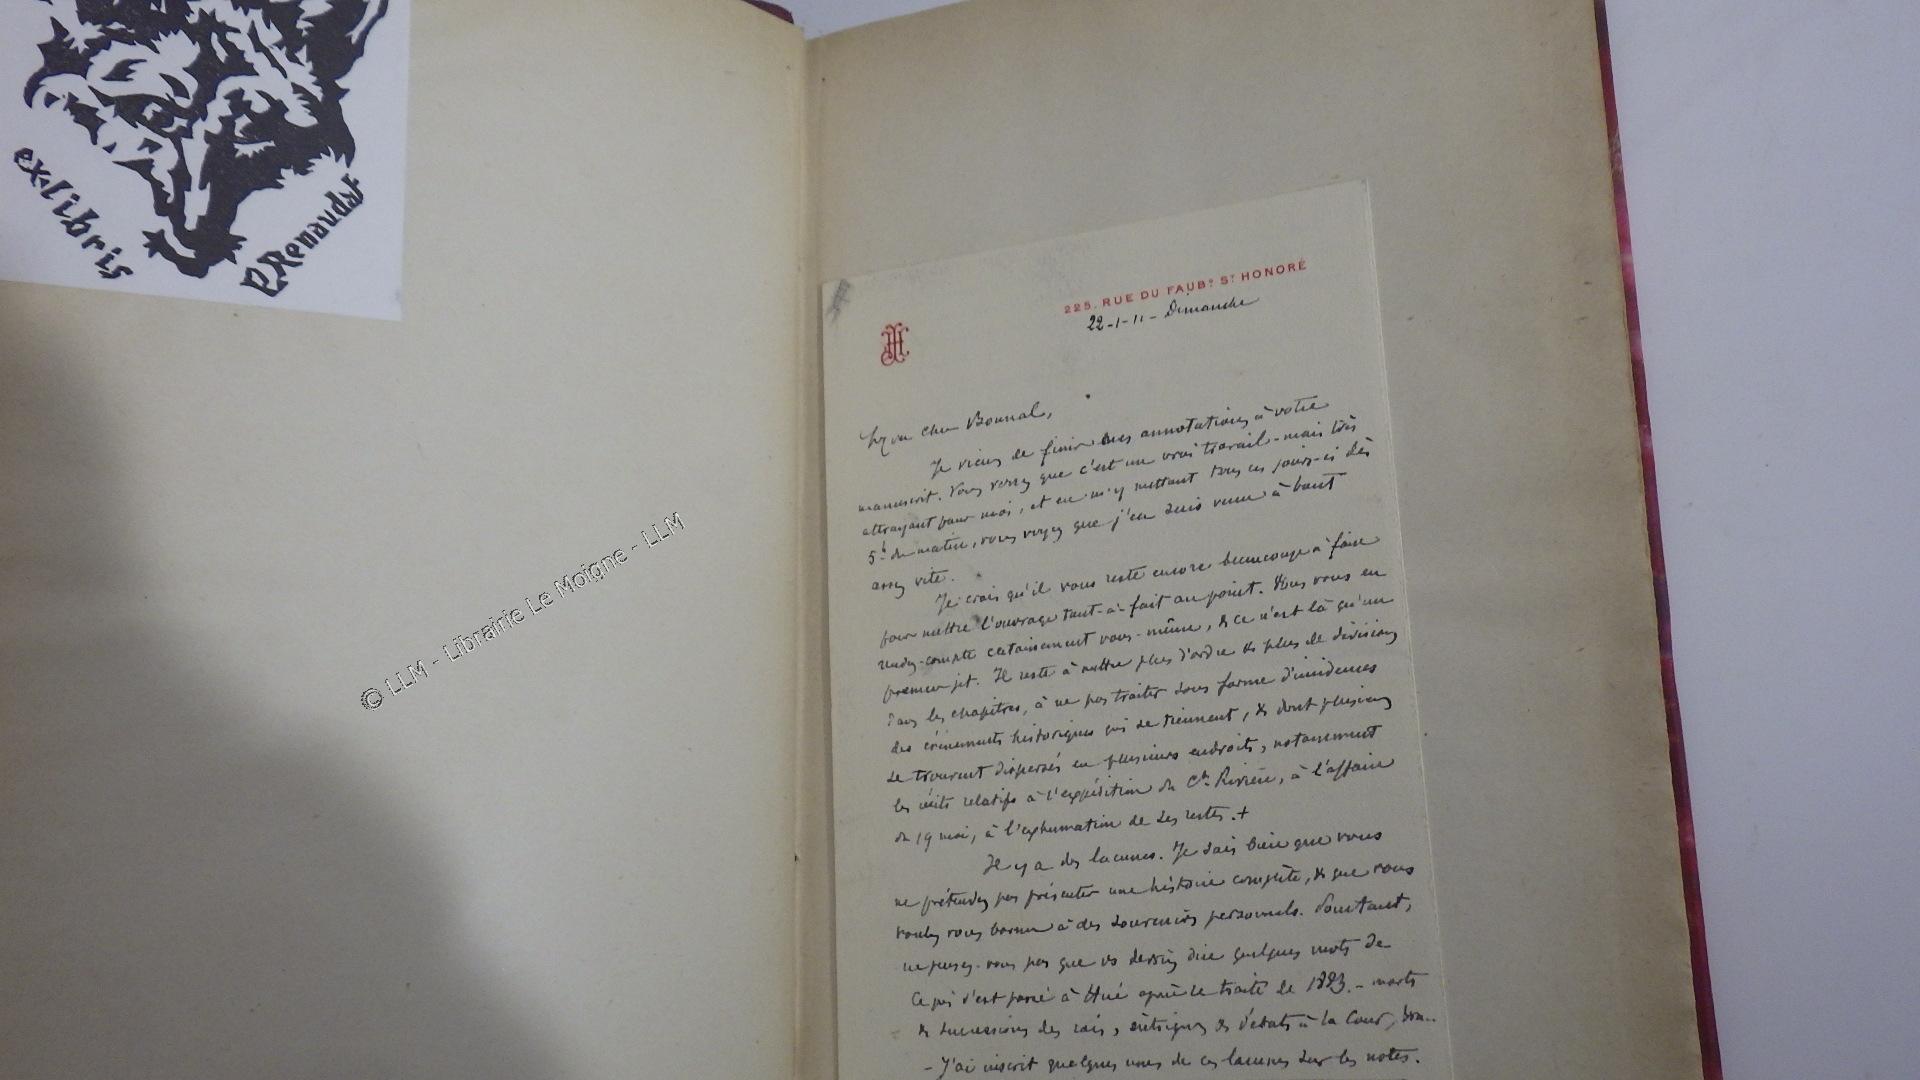 ex-libris
P. Renaudat
© LLM - Librairie Le Moigne - LLM
225, RUE DU FAUBG ST HONORÉ
22-1-11 - Dimanche
Mon cher Bonnal,
Je viens de finir mes annotations à votre
manuscrit. Vous verrez que c'est un vrai travail - mais très
attrayant pour moi, et en m'y mettant tous ces jours-ci dès
5h du matin, vous voyez que j'en suis venu à bout
assez vite.
Je crois qu'il vous reste encore beaucoup à faire
pour mettre l'ouvrage tout-à-fait au point. Vous vous en
rendez-compte certainement vous-même, & ce n'est là qu'un
premier jet. Il reste à mettre plus d'ordre & plus de divisions
dans les chapitres, à ne pas traiter sous forme d'incidences
des événements historiques qui se tiennent, & dont plusieurs
se trouvent dispersés en plusieurs endroits, notamment
les récits relatifs à l'expédition du Ct Rivière, à l'affaire
du 19 mai, à l'exhumation de ses restes. +
Il y a des lacunes. Je sais bien que vous
ne prétendez pas présenter une histoire complète, & que vous
voulez vous borner à des souvenirs personnels. Pourtant,
ne pensez-vous pas que vs devriez dire quelques mots de
ce qui s'est passé à Hué après le traité de 1883. - morts
& successions des rois, intrigues & débats à la Cour,
- J'ai inscrit quelques unes de ces lacunes sur les notes.